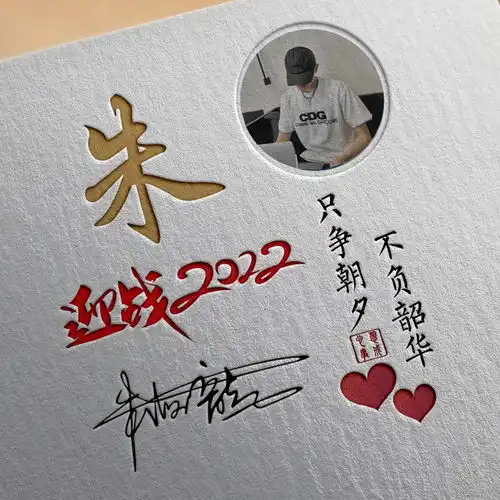 CDG
朱
只争朝夕
不负韶华
迎战2022